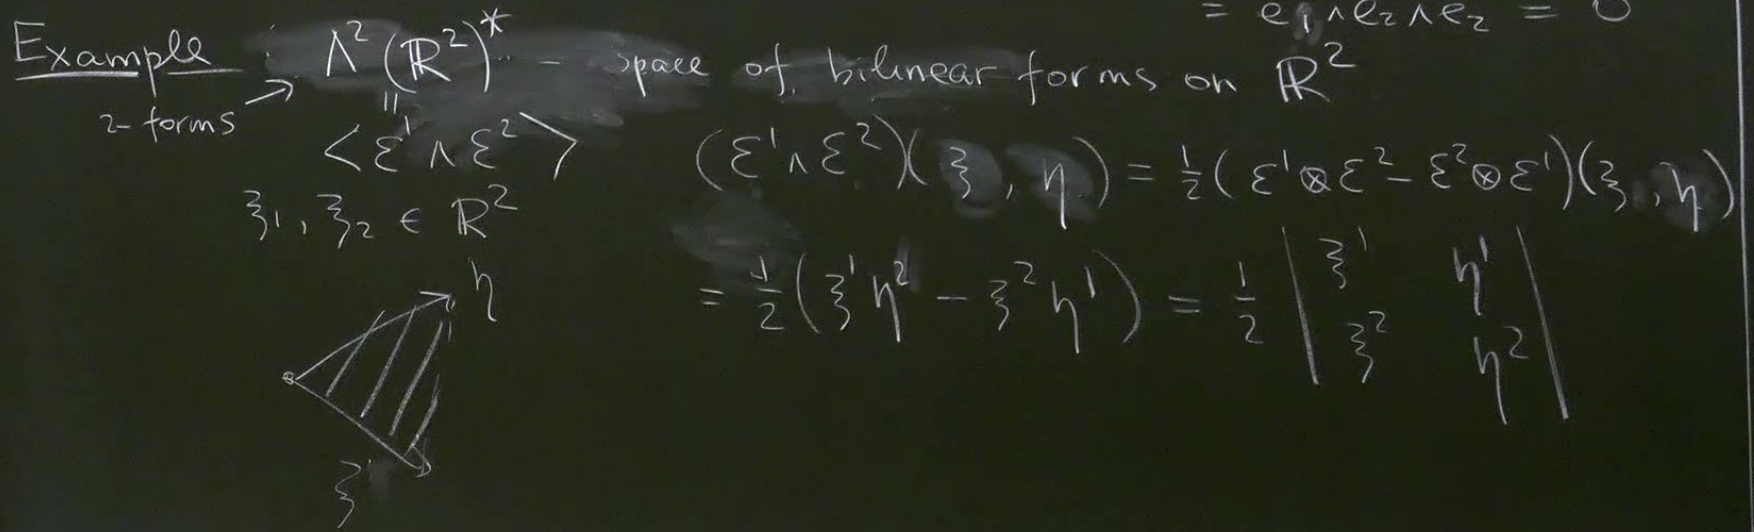 = e₁∧e₂∧e₂ = 0
Example Λ²(ℝ²)* - space of bilinear forms on ℝ²
2-forms → ||
<ε¹∧ε²> (ε¹∧ε²)(ξ, η) = ½(ε¹⊗ε² - ε²⊗ε¹)(ξ, η)
ξ₁, ξ₂ ∈ ℝ²
= ½(ξ¹η² - ξ²η¹) = ½ | ξ¹ η¹ |
| ξ² η² |
η
ξ